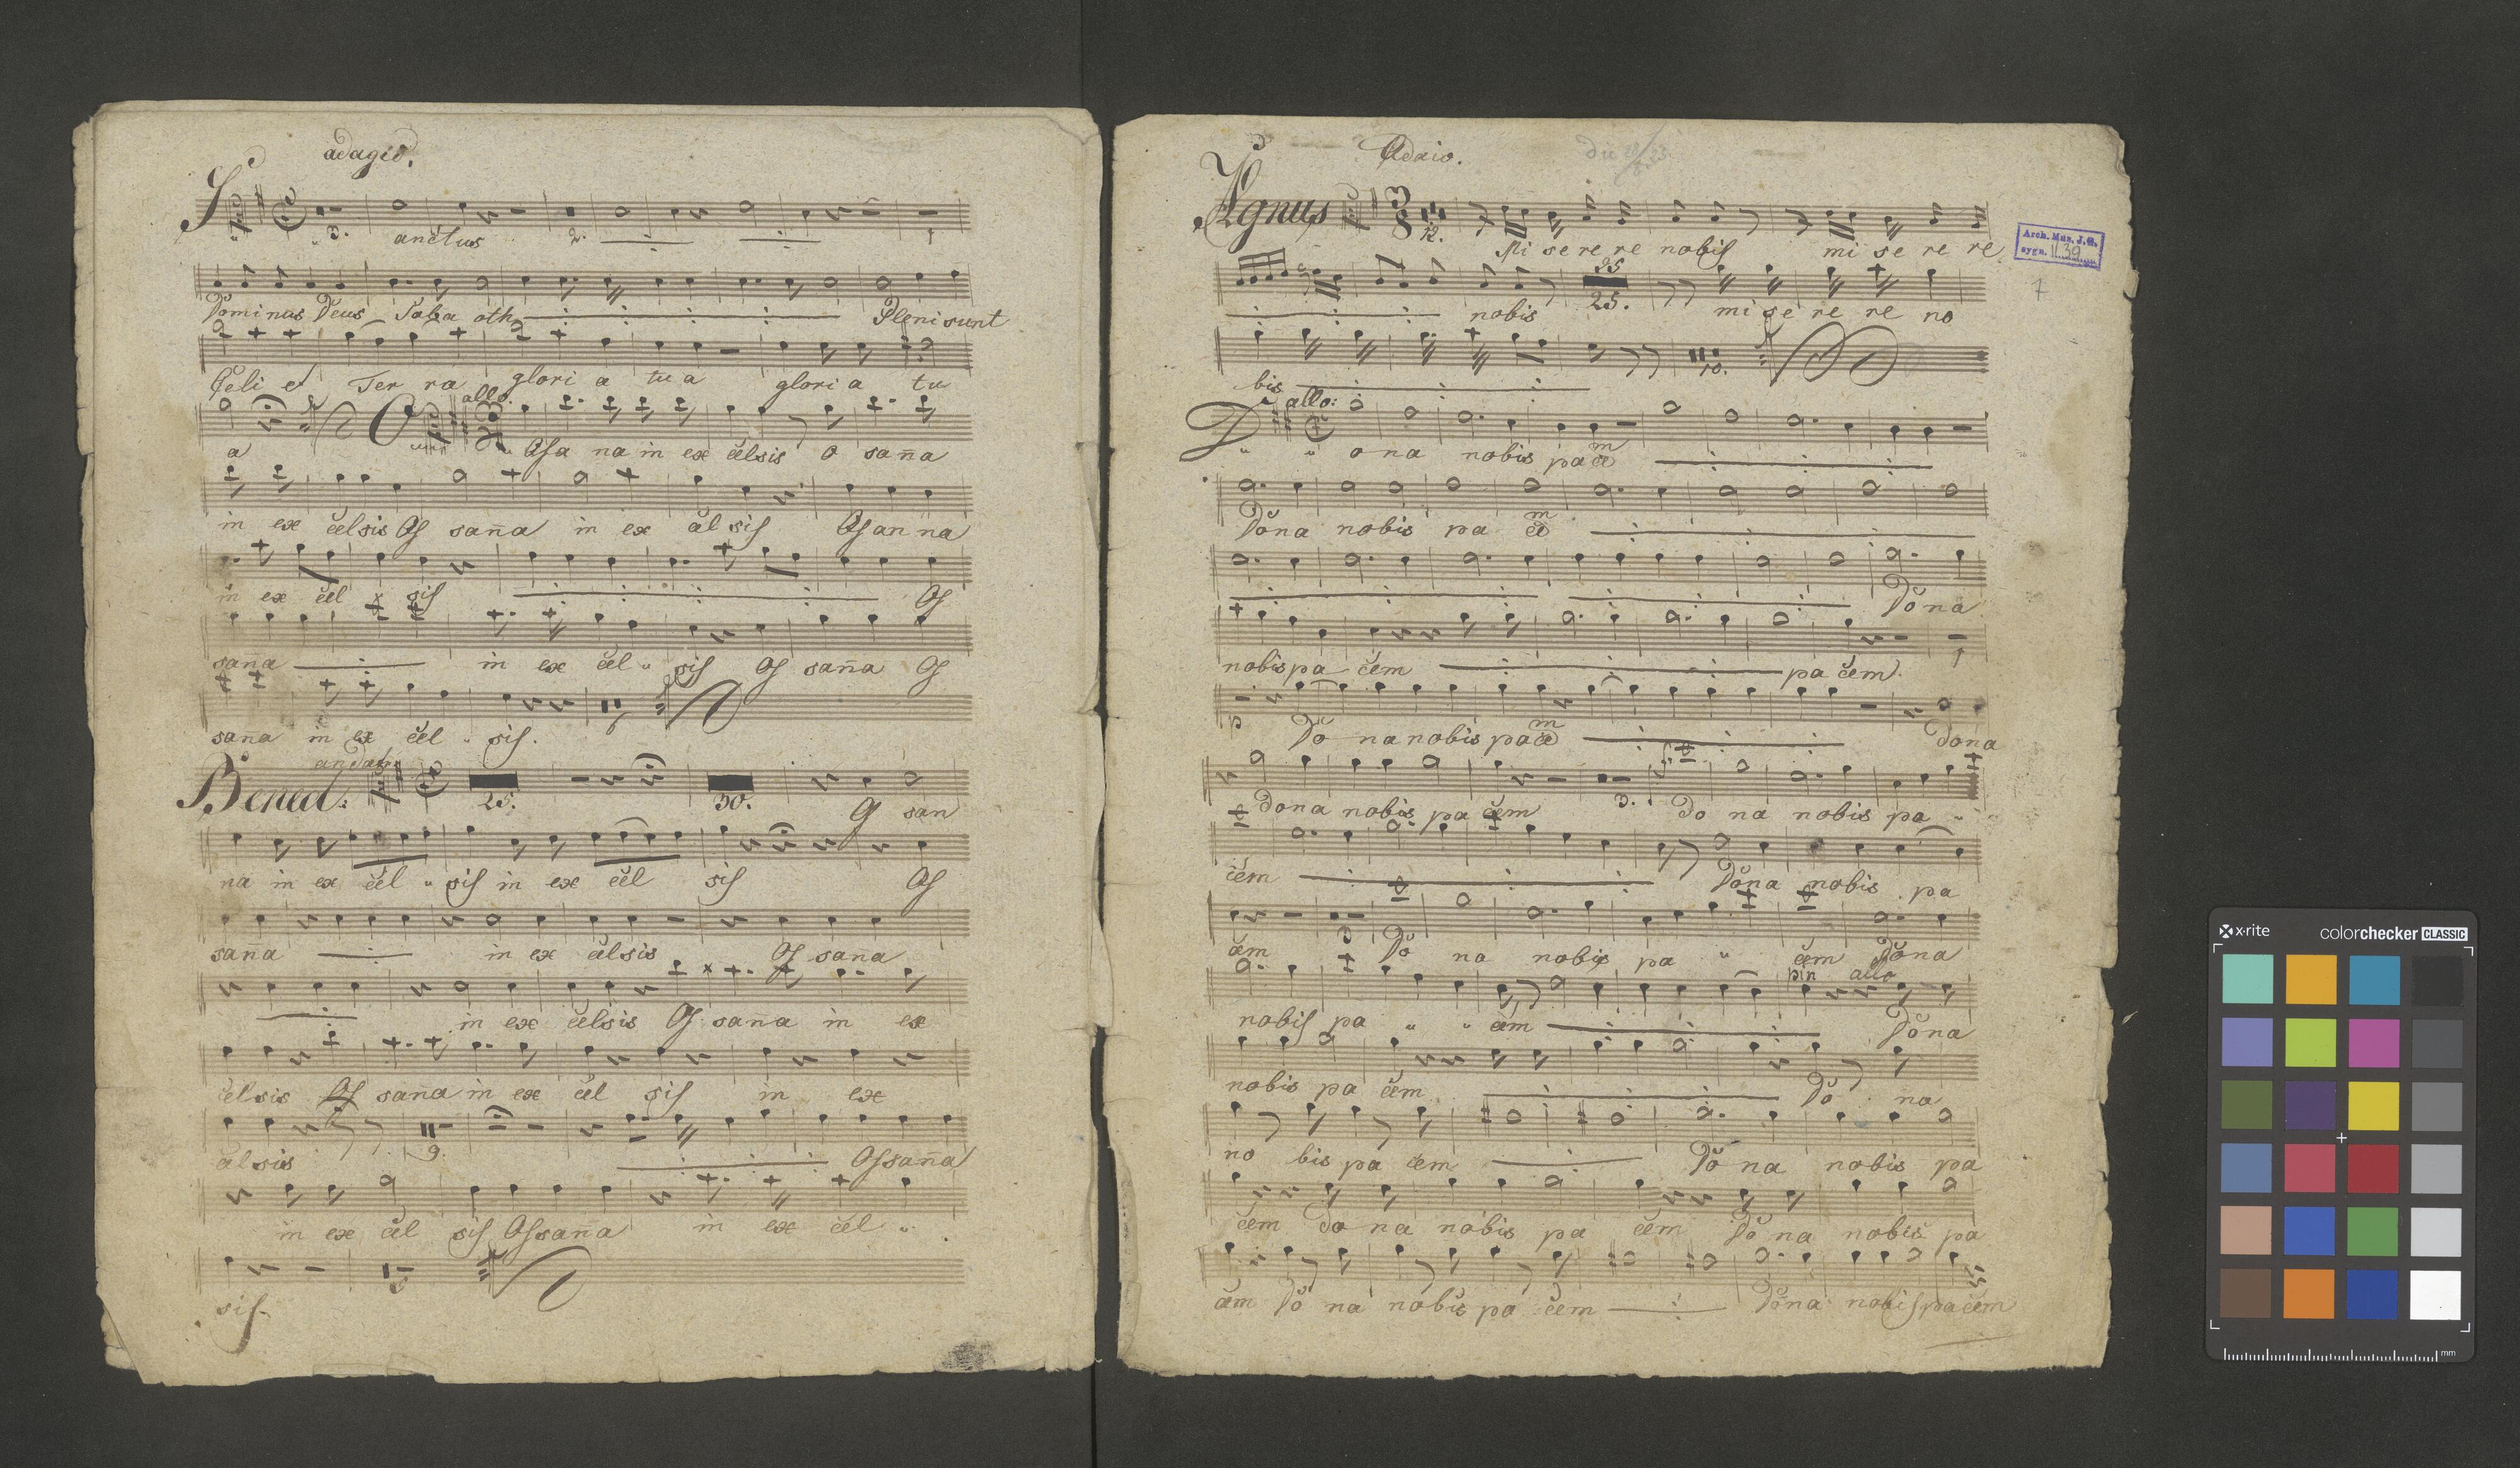 adagio.
S
3. anctus 2. 1
Dominus Deus Saba oth Pleni sunt
Cĕli et Ter ra glori a tu a glori a tu
allo.
a O Osa na in ex cĕlsis o sana
in ex cĕlsis Os sana in ex cĕl sis Osan na
in ex cĕl sis Os
sana in ex cĕl sis Os sana Os
sana in ex cĕl sis.
andante
Bened: 25. 30. O san
na in ex cĕl sis in ex cĕl sis Os
sana in ex cĕlsis Os sana
in ex cĕlsis Os sana in ex
cĕlsis Os sana in ex cĕl sis in ex
cĕlsis 9. Ossana
in ex cĕl sis Ossana in ex cĕl
sis.
Adaio.
Agnus 3/8 12.
Mi se re re nobis mi se re re
nobis 25 25. mi se re re no
bis 10.
allo:
D ona nobis pacĕm
Dona nobis pa cĕm
Dona
nobis pa cĕm pa cĕm. 1
p Do na nobis pacĕm dona
dona nobis pa cĕm 3. Do na nobis pa
cĕm Dona nobis pa
cĕm 3 Do na nobis pa cĕm Dona
nobis pa cĕm Dona
nobis pa cĕm Do na
no bis pa cĕm Do na nobis pa
cĕm do na nobis pa cĕm Do na nobis pa
cĕm Do na nobis pa cĕm Dona nobis pacĕm
Arch. Muz. J. G.
sygn. II 39
7
x-rite colorchecker CLASSIC
mm